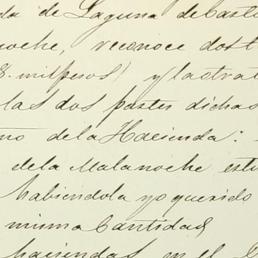 da de Laguna de Casti
noche, reconoce dos t
8. mil pesos) y la strat
las dos partes dichas
no de la Hacienda:
de la Malanoche est
habiendola yo querido
misma Cantidad
haciendas en el